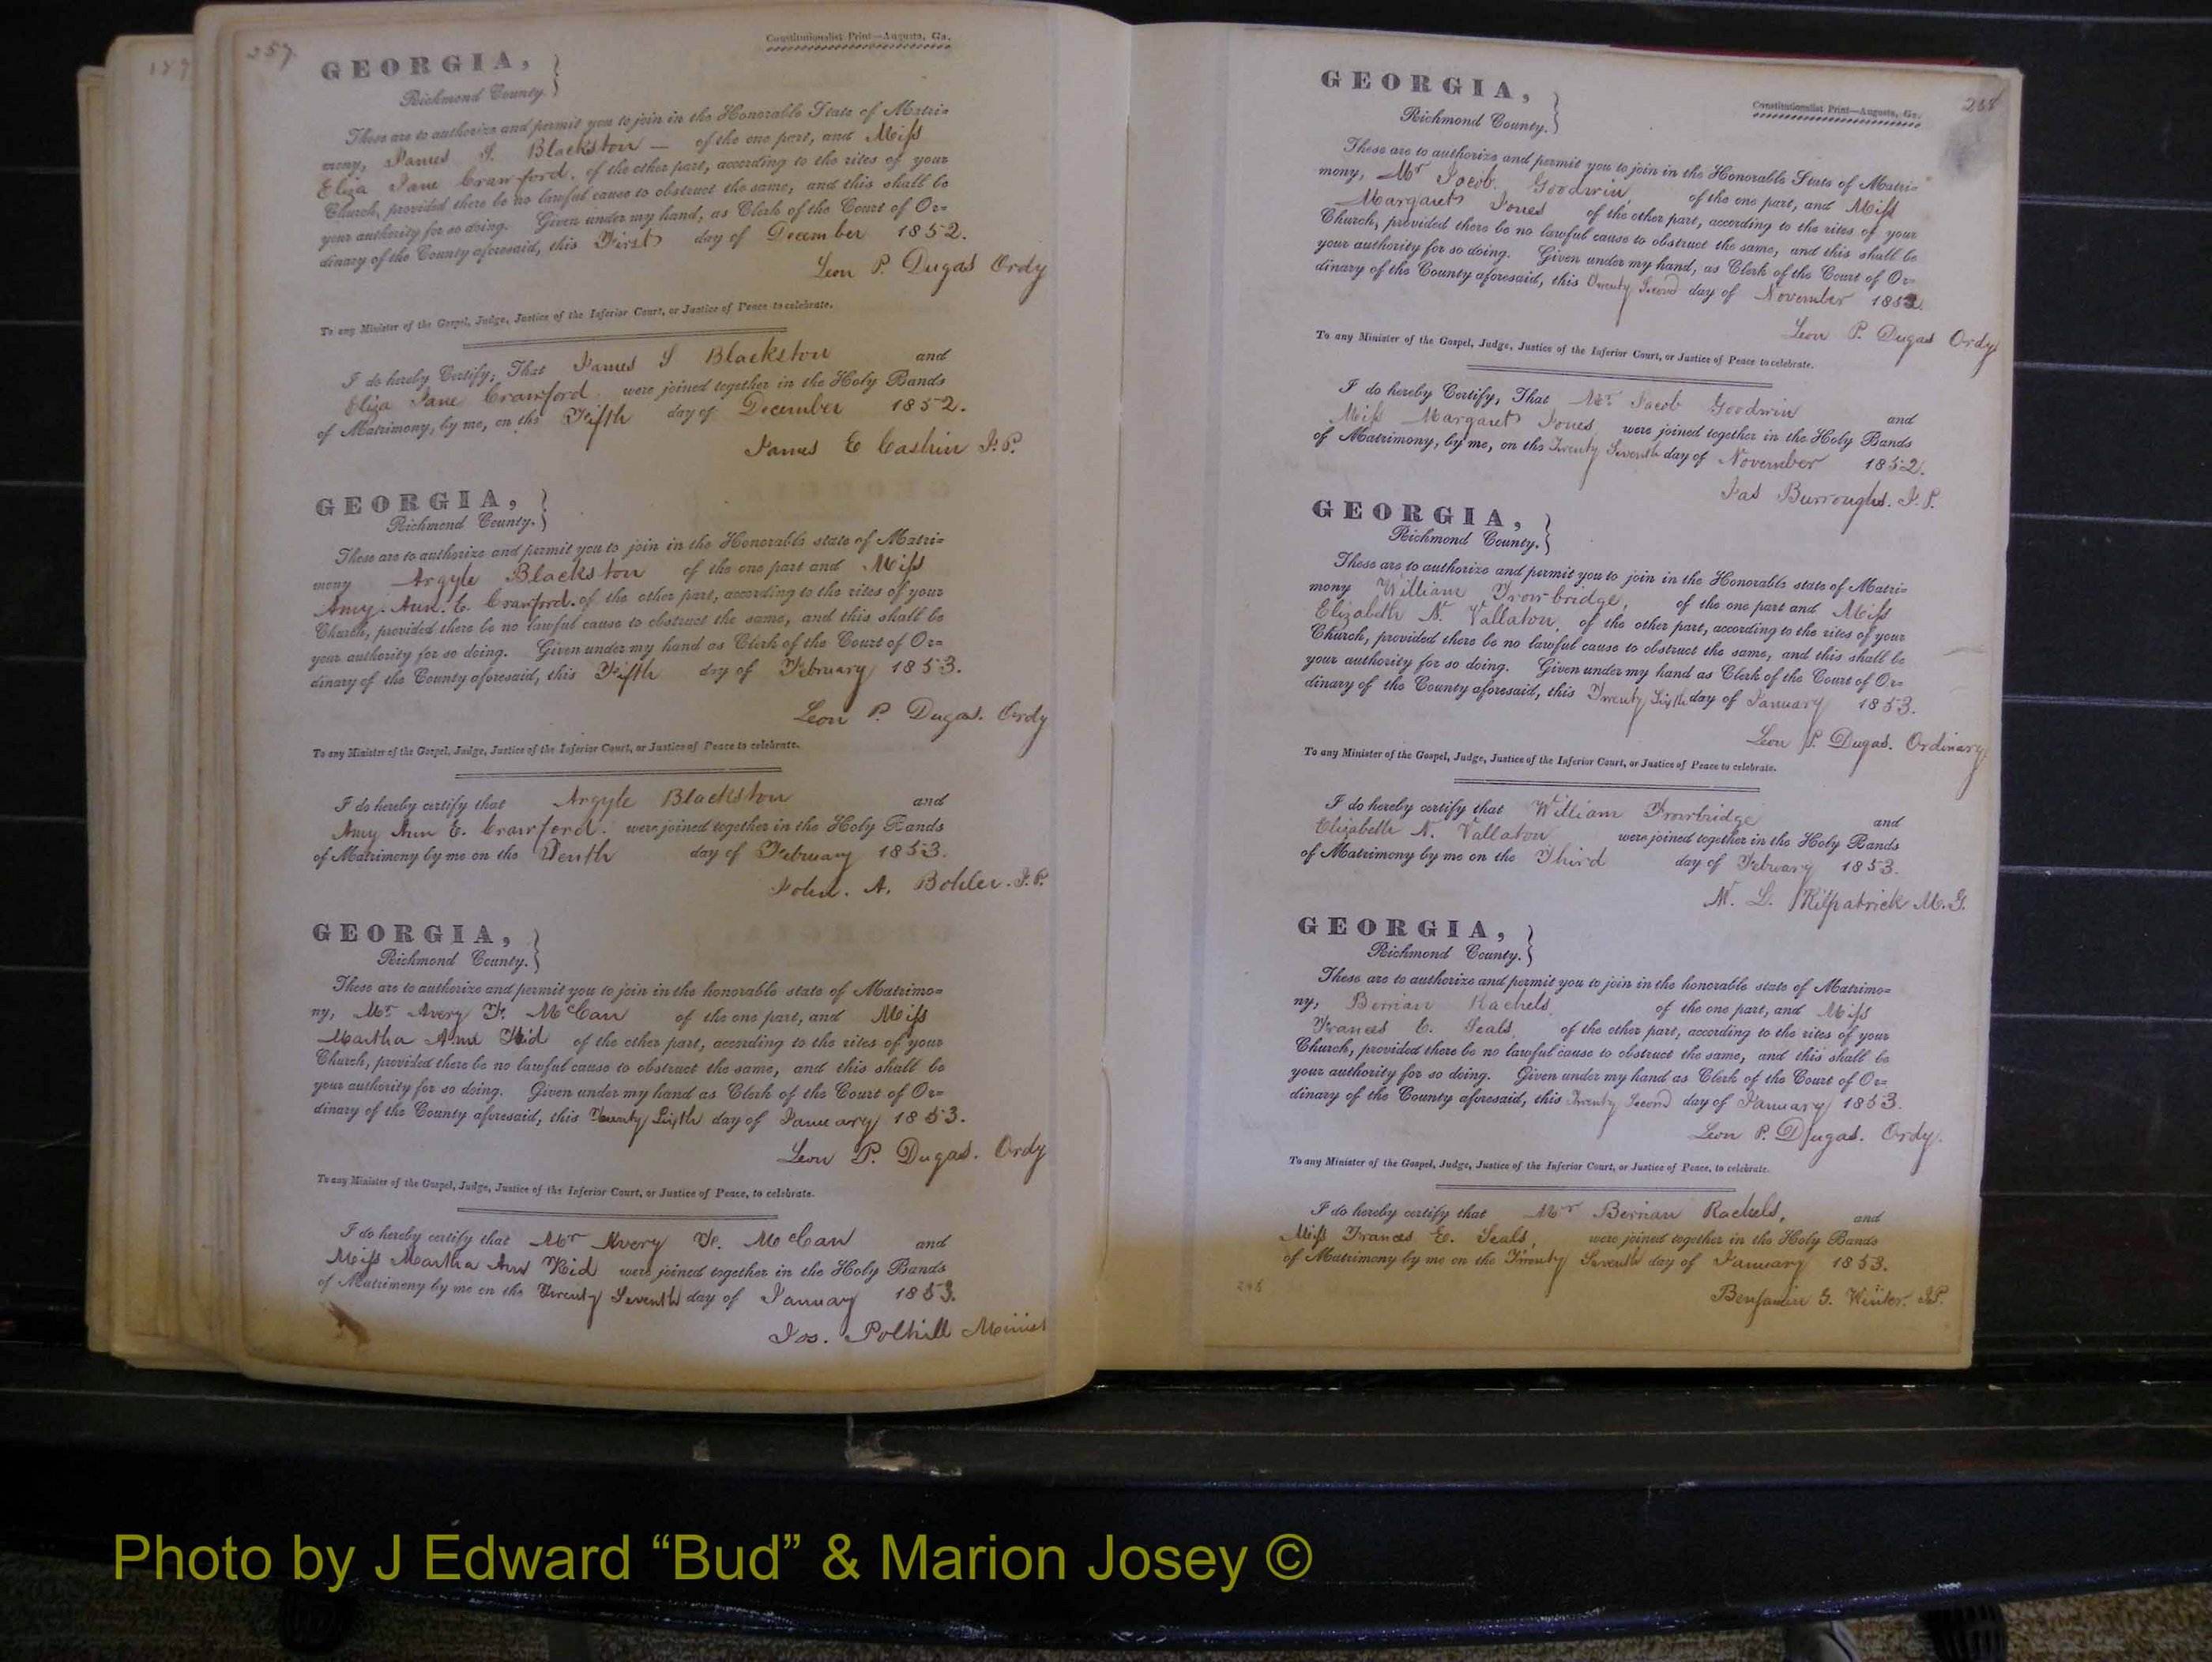 257
Constitutionalist Print—Augusta, Ga.
GEORGIA,
Richmond County.
These are to authorize and permit you to join in the Honorable State of Matri-
mony, James S. Blackston — of the one part, and Miss
Eliza Jane Crawford. of the other part, according to the rites of your
Church, provided there be no lawful cause to obstruct the same, and this shall be
your authority for so doing. Given under my hand, as Clerk of the Court of Or-
dinary of the County aforesaid, this First day of December 1852.
Leon P. Dugas Ordy
To any Minister of the Gospel, Judge, Justice of the Inferior Court, or Justice of Peace to celebrate.
I do hereby Certify, That James S Blackston and
Eliza Jane Crawford were joined together in the Holy Bands
of Matrimony, by me, on the Fifth day of December 1852.
James E Cashin J.P.
GEORGIA,
Richmond County.
These are to authorize and permit you to join in the Honorable state of Matri-
mony Argyle Blackston of the one part and Miss
Amy. Ann. E. Crawford. of the other part, according to the rites of your
Church, provided there be no lawful cause to obstruct the same, and this shall be
your authority for so doing. Given under my hand as Clerk of the Court of Or-
dinary of the County aforesaid, this Fifth day of February 1853.
Leon P. Dugas. Ordy
To any Minister of the Gospel, Judge, Justice of the Inferior Court, or Justice of Peace to celebrate.
I do hereby certify that Argyle Blackston and
Amy Ann E. Crawford. were joined together in the Holy Bands
of Matrimony by me on the Tenth day of February 1853.
John. A. Bohler. J.P.
GEORGIA,
Richmond County.
These are to authorize and permit you to join in the honorable state of Matrimo-
ny, Mr Avery F. McCan of the one part, and Miss
Martha Ann Kid of the other part, according to the rites of your
Church, provided there be no lawful cause to obstruct the same, and this shall be
your authority for so doing. Given under my hand as Clerk of the Court of Or-
dinary of the County aforesaid, this Twenty Sixth day of January 1853.
Leon P. Dugas. Ordy
To any Minister of the Gospel, Judge, Justice of the Inferior Court, or Justice of Peace, to celebrate.
I do hereby certify that Mr Avery F. McCan and
Miss Martha Ann Kid were joined together in the Holy Bands
of Matrimony by me on the Twenty Seventh day of January 1853.
Jos. Polhill Minist
258
Constitutionalist Print—Augusta, Ga.
GEORGIA,
Richmond County.
These are to authorize and permit you to join in the Honorable State of Matri-
mony, Mr Jacob. Goodwin, of the one part, and Miss
Margaret Jones of the other part, according to the rites of your
Church, provided there be no lawful cause to obstruct the same, and this shall be
your authority for so doing. Given under my hand, as Clerk of the Court of Or-
dinary of the County aforesaid, this Twenty Second day of November 1852.
Leon P. Dugas Ordy
To any Minister of the Gospel, Judge, Justice of the Inferior Court, or Justice of Peace to celebrate.
I do hereby Certify, That Mr. Jacob Goodwin and
Miss Margaret Jones were joined together in the Holy Bands
of Matrimony, by me, on the Twenty Seventh day of November 1852.
Jas Burroughs. J.P.
GEORGIA,
Richmond County.
These are to authorize and permit you to join in the Honorable state of Matri-
mony William Trowbridge, of the one part and Miss
Elizabeth N. Vallaton, of the other part, according to the rites of your
Church, provided there be no lawful cause to obstruct the same, and this shall be
your authority for so doing. Given under my hand as Clerk of the Court of Or-
dinary of the County aforesaid, this Twenty Sixth day of January 1853.
Leon P. Dugas. Ordinary
To any Minister of the Gospel, Judge, Justice of the Inferior Court, or Justice of Peace to celebrate.
I do hereby certify that William Trowbridge and
Elizabeth N. Vallaton were joined together in the Holy Bands
of Matrimony by me on the Third day of February 1853.
W. L. Kilpatrick M.G.
GEORGIA,
Richmond County.
These are to authorize and permit you to join in the honorable state of Matrimo-
ny, Berrian Rachels of the one part, and Miss
Frances E. Seals, of the other part, according to the rites of your
Church, provided there be no lawful cause to obstruct the same, and this shall be
your authority for so doing. Given under my hand as Clerk of the Court of Or-
dinary of the County aforesaid, this Twenty Second day of January 1853.
Leon P. Dugas. Ordy.
To any Minister of the Gospel, Judge, Justice of the Inferior Court, or Justice of Peace, to celebrate.
I do hereby certify that Mr Berrian Rachels, and
Miss Frances E. Seals, were joined together in the Holy Bands
of Matrimony by me on the Twenty Seventh day of January 1853.
Benjamin G. Winter. J.P.
Photo by J Edward “Bud” & Marion Josey ©